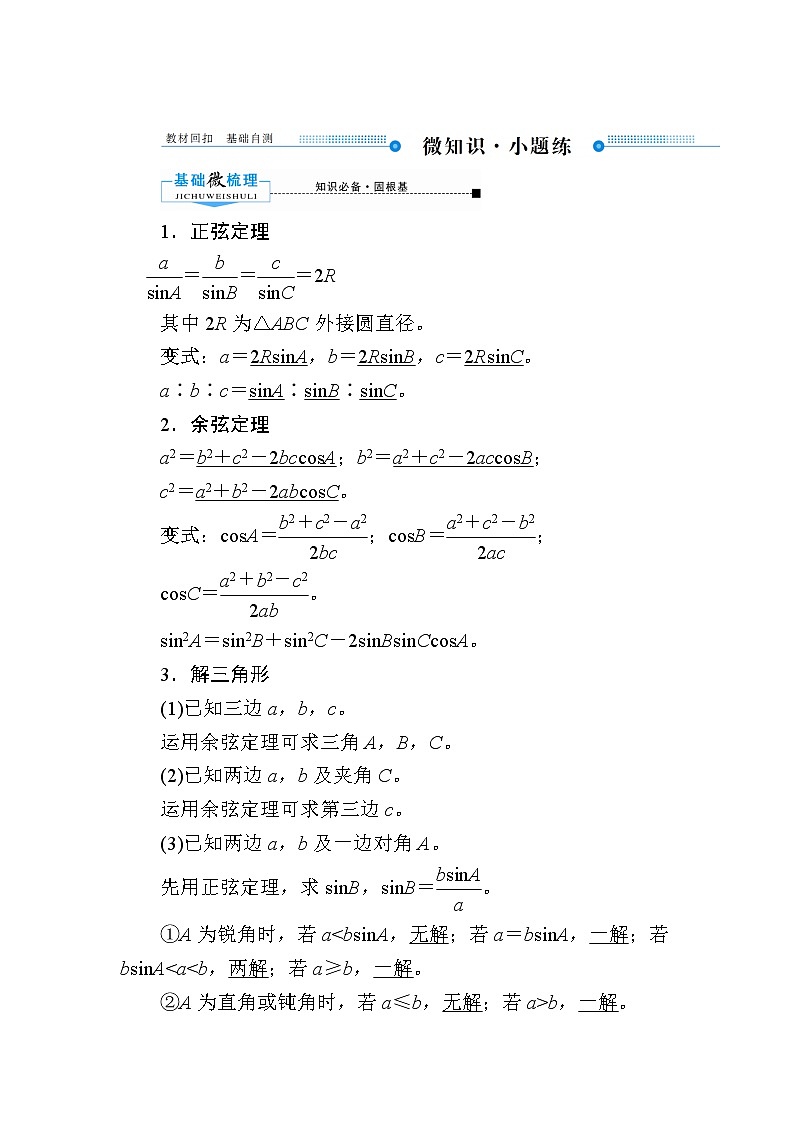 教材回扣 基础自测
微知识·小题练
基础微梳理
JICHUWEISHULI
知识必备·固根基
1．正弦定理
a/sinA＝b/sinB＝c/sinC＝2R
其中 2R 为△ABC 外接圆直径。
变式：a＝2RsinA，b＝2RsinB，c＝2RsinC。
a∶b∶c＝sinA∶sinB∶sinC。
2．余弦定理
a²＝b²＋c²－2bccosA；b²＝a²＋c²－2accosB；
c²＝a²＋b²－2abcosC。
变式：cosA＝(b²＋c²－a²)/2bc；cosB＝(a²＋c²－b²)/2ac；
cosC＝(a²＋b²－c²)/2ab。
sin²A＝sin²B＋sin²C－2sinBsinCcosA。
3．解三角形
(1)已知三边 a，b，c。
运用余弦定理可求三角 A，B，C。
(2)已知两边 a，b 及夹角 C。
运用余弦定理可求第三边 c。
(3)已知两边 a，b 及一边对角 A。
先用正弦定理，求 sinB，sinB＝bsinA/a。
①A 为锐角时，若 a<bsinA，无解；若 a＝bsinA，一解；若
bsinA<a<b，两解；若 a≥b，一解。
②A 为直角或钝角时，若 a≤b，无解；若 a>b，一解。